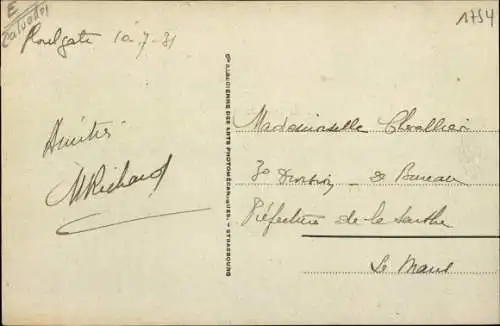 E
Calvados
Houlgate 10-7-31
1754
Amitiés
MRichard
Cie ALSACIENNE DES ARTS PHOTOMÉCANIQUES. - STRASBOURG
Mademoiselle Chevallier
3e Division - 2e Bureau
Préfecture de la Sarthe
Le Mans